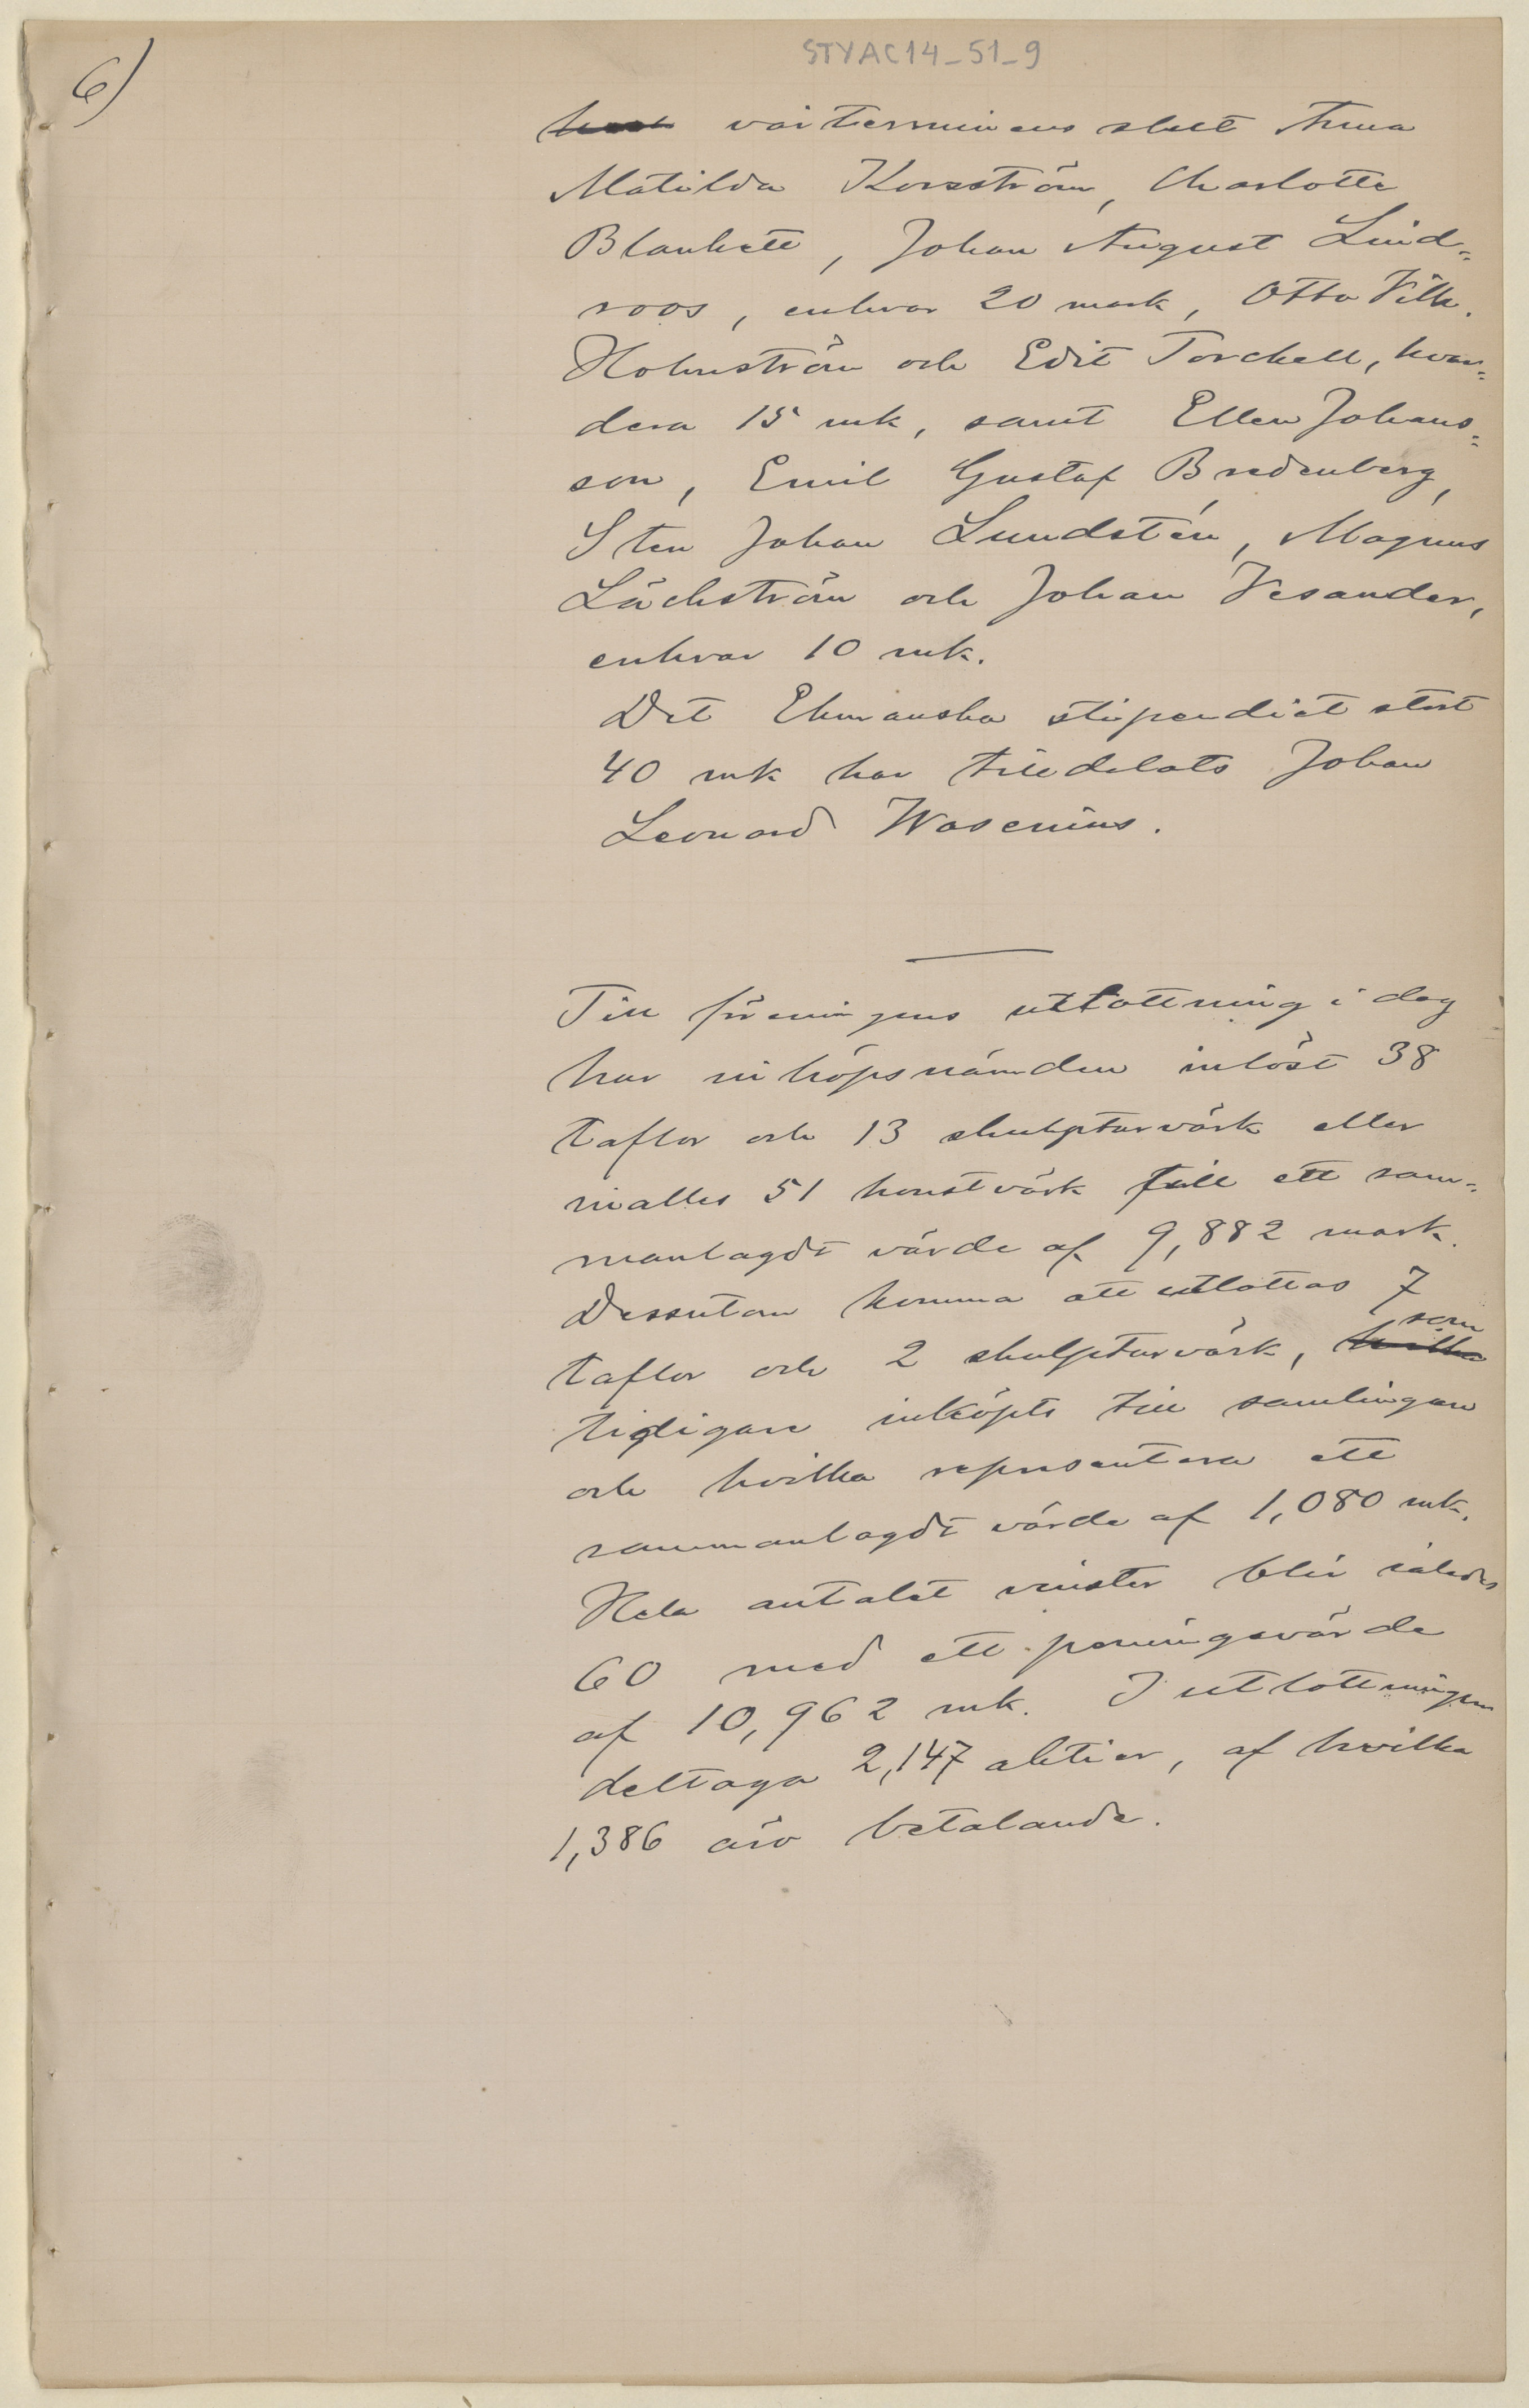 STYAC14_51_9
6)
vårterminens slut Anna
Matilda Korsström, Charlotte
Blankett, Johan August Lind=
roos, enhvar 20 mark, Otto Vilh.
Holmström och Edit Torckell, hvar=
dera 15 mk, samt Ellen Johans=
son, Emil Gustaf Bredenberg,
Sten Johan Lundstén, Magnus
Läckström och Johan Vesander,
enhvar 10 mk.
Det Ehmanska stipendiet stort
40 mk har tilldelats Johan
Leonard Wasenius.
Till föreningens utlottning i dag
har inköpsnämden inlöst 38
taflor och 13 skulpturvärk eller
inalles 51 konstvärk till ett sam=
manlagdt värde af 9,882 mark.
Dessutom komma att utlottas 7
som
taflor och 2 skulpturvärk, hvilka
tidigare inköpts till samlingen
och hvilka representera ett
sammanlagdt värde af 1,080 mk.
Hela antalet vinster blir således
60 med ett penningevärde
af 10,962 mk. I utlottningen
deltaga 2,147 aktier, af hvilka
1,386 äro betalande.